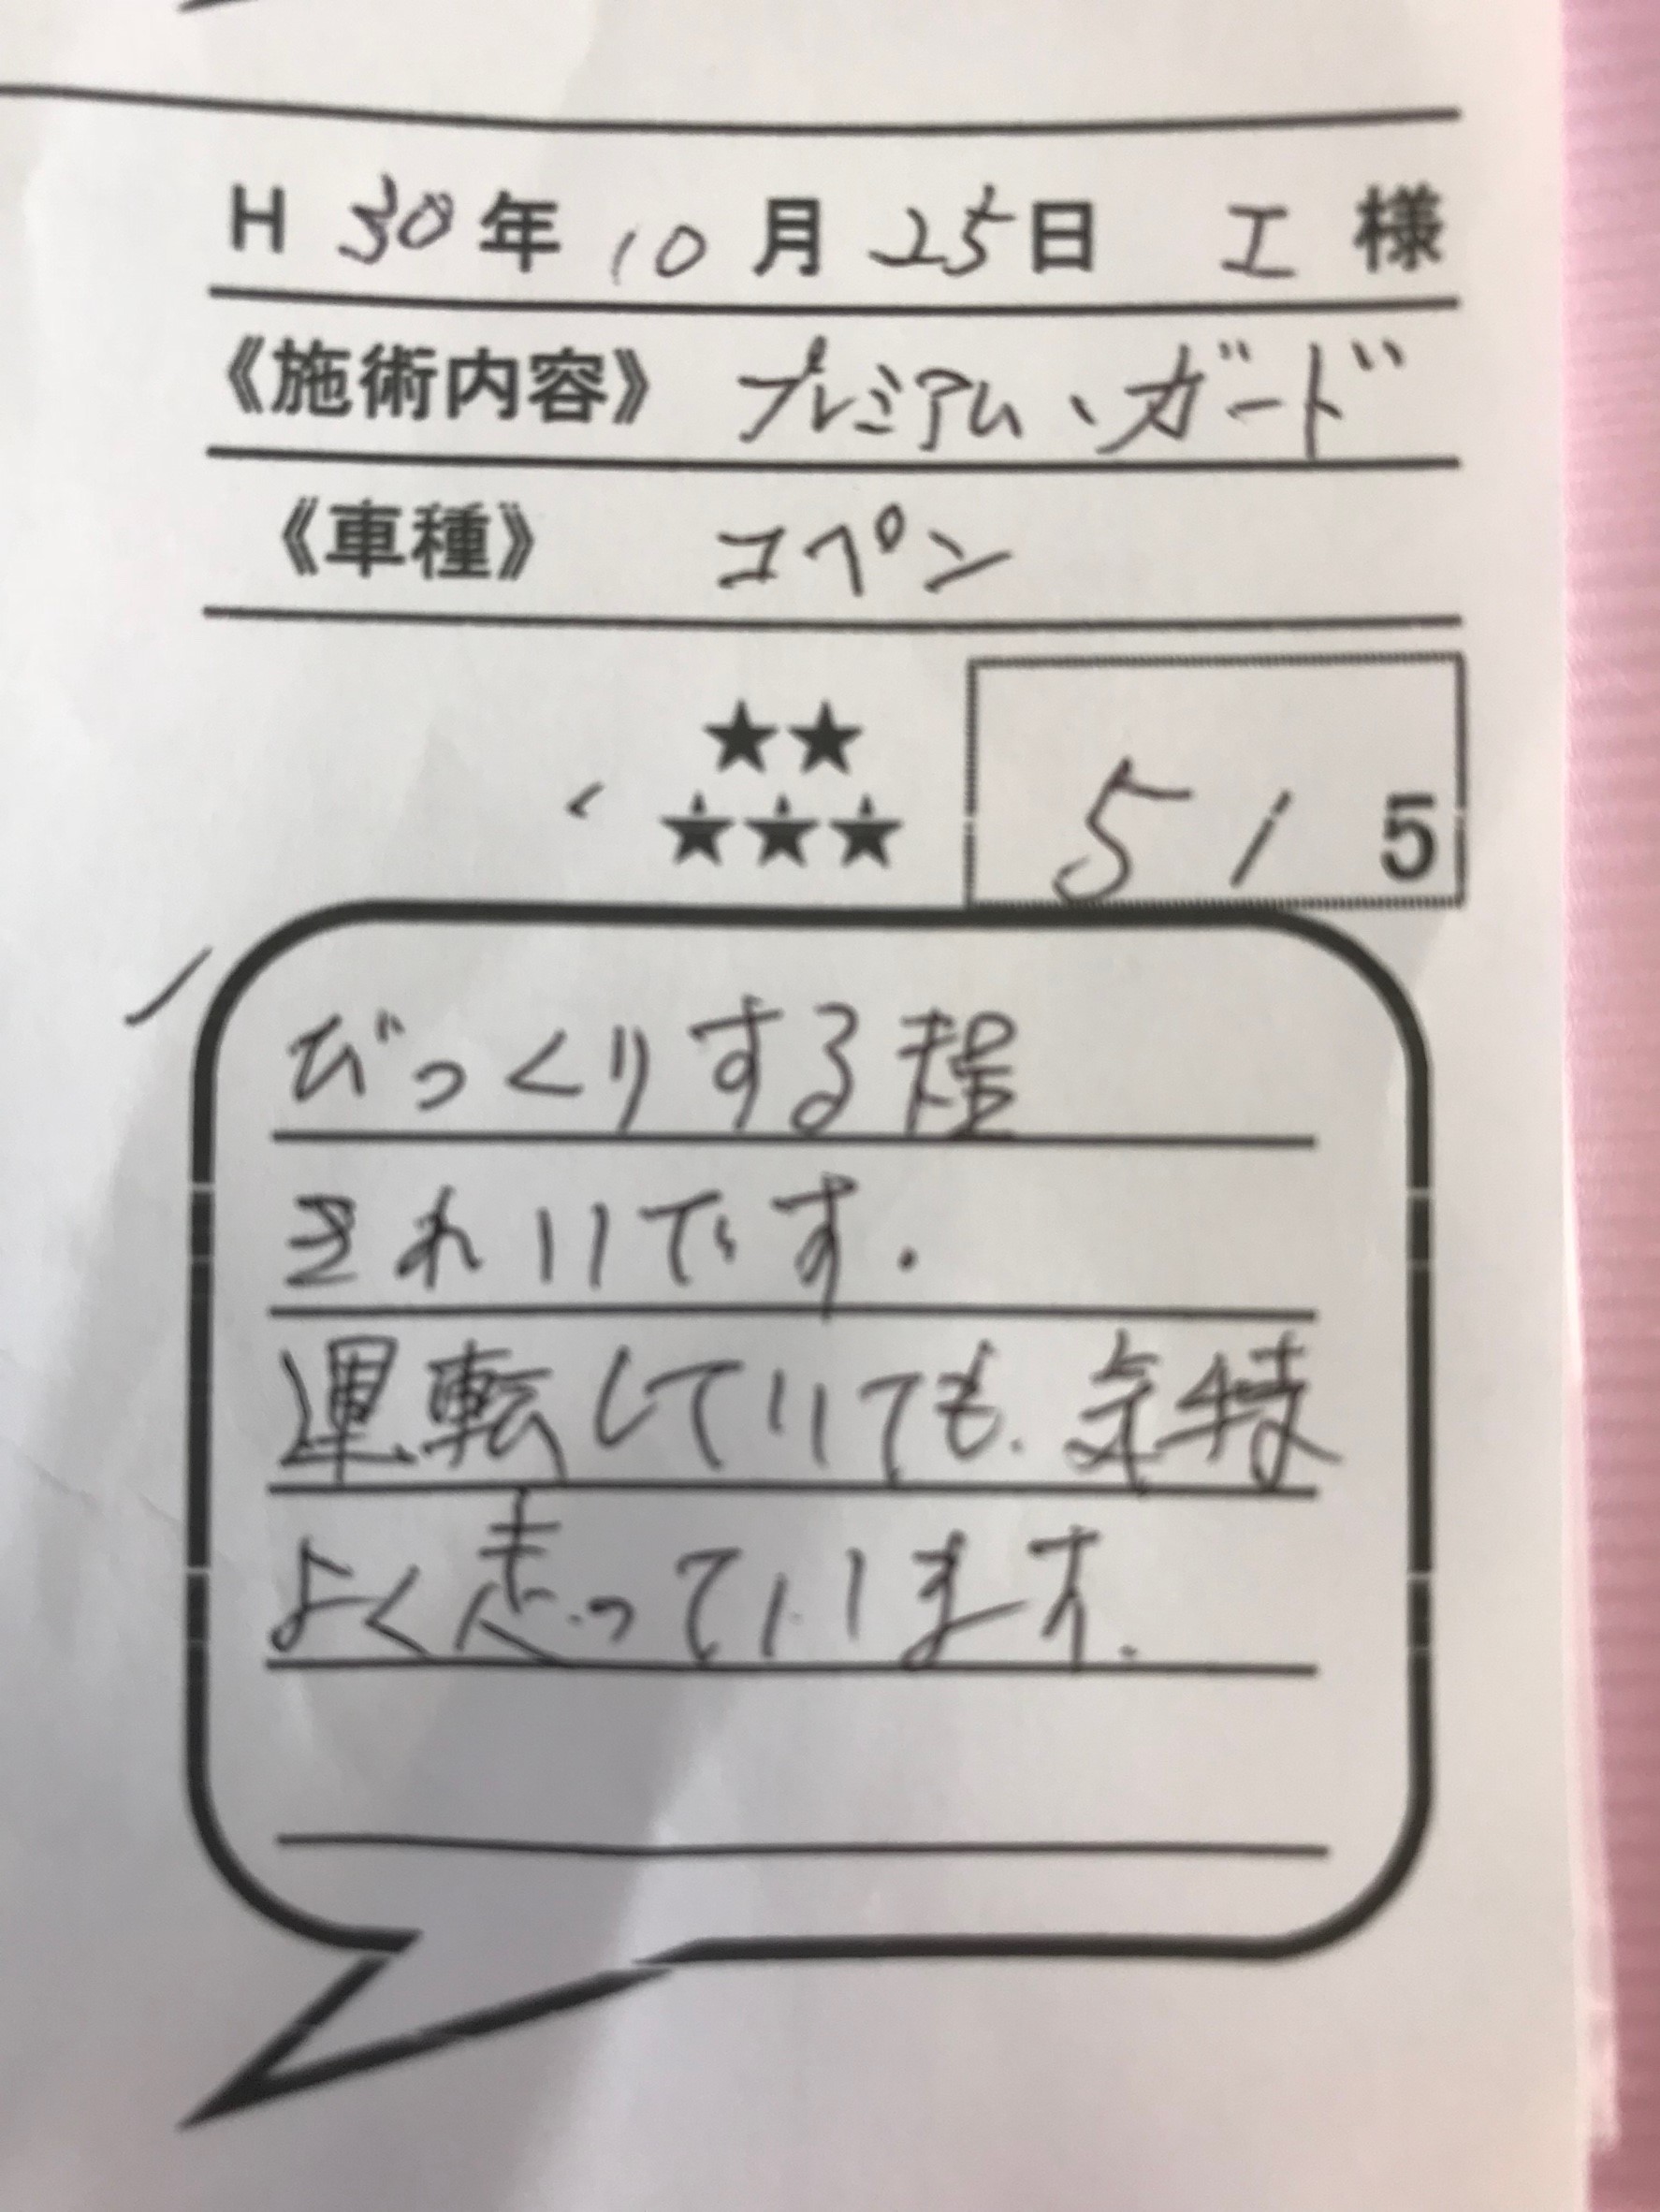 H 30年 10月 25日 エ 様
《施術内容》 プレミアム、ガード
《車種》 コペン
★★
★★★ 5/5
びっくりする程
きれいです.
運転していても、気持
よく走っています.